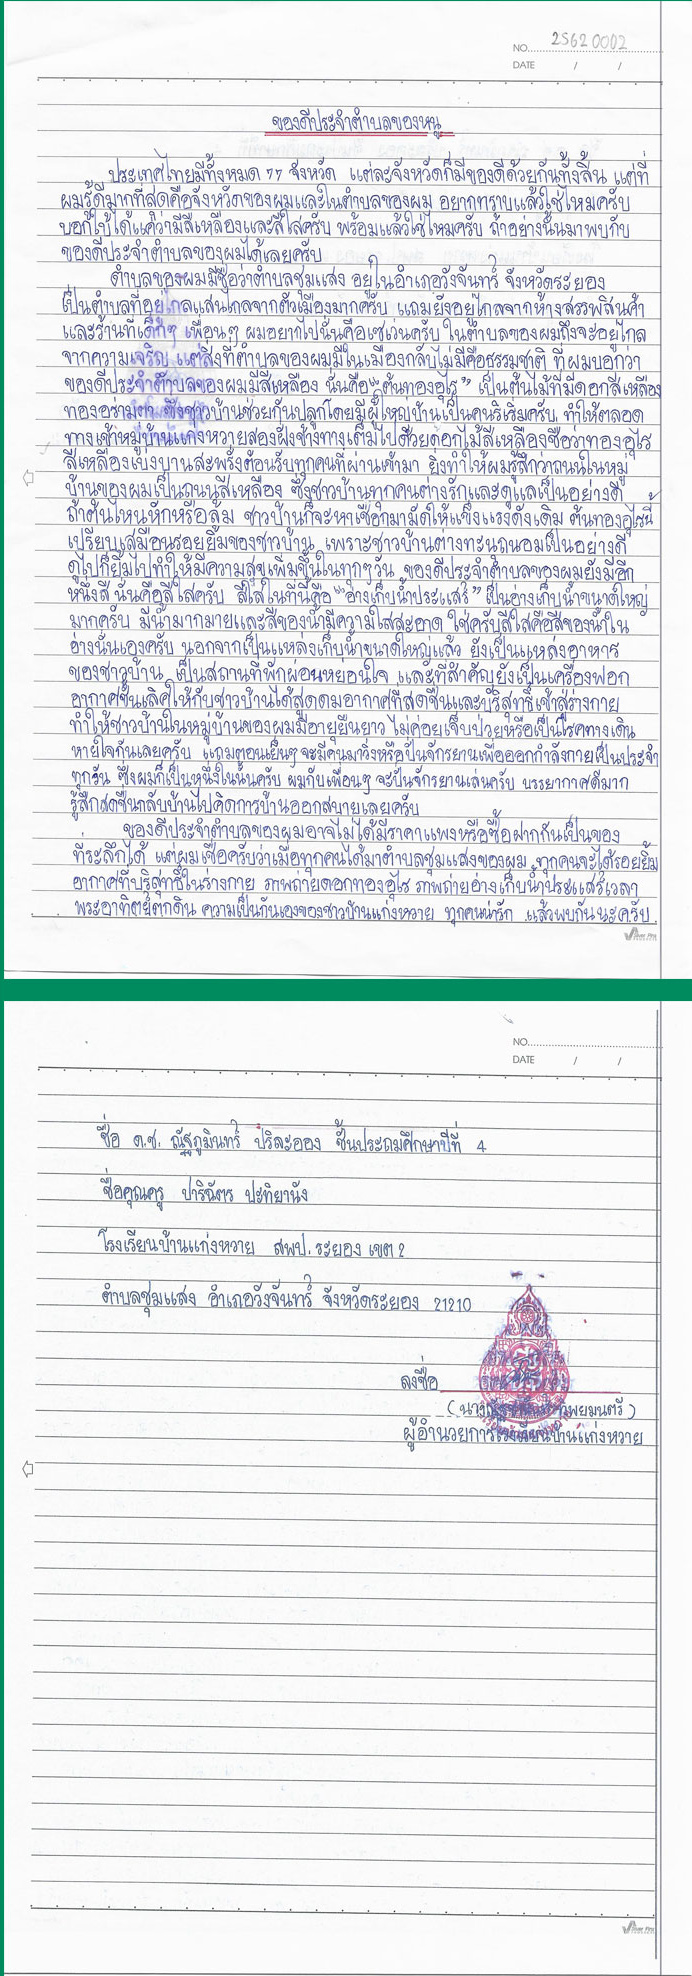 NO. 25620002
DATE / /
ของดีประจำตำบลของหนู
ประเทศไทยมีทั้งหมด 77 จังหวัด แต่ละจังหวัดก็มีของดีด้วยกันทั้งสิ้น แต่ที่
ผมรู้ดีมากที่สุดคือจังหวัดของผมและในตำบลของผม อยากทราบแล้วใช่ไหมครับ
บอกใบ้ได้แค่ว่ามีสีเหลืองและสีใสครับ พร้อมแล้วใช่ไหมครับ ถ้าอย่างนั้นมาพบกับ
ของดีประจำตำบลของผมได้เลยครับ
ตำบลของผมมีชื่อว่าตำบลชุมแสง อยู่ในอำเภอวังจันทร์ จังหวัดระยอง
เป็นตำบลที่อยู่ไกลแสนไกลจากตัวเมืองมากครับ แถมยังอยู่ไกลจากห้างสรรพสินค้า
และร้านที่เด็กๆ เพื่อนๆ ผมอยากไปนั่นคือเซเว่นครับ ในตำบลของผมถึงจะอยู่ไกล
จากความเจริญ แต่สิ่งที่ตำบลของผมมีในเมืองกลับไม่มีคือธรรมชาติ ที่ผมบอกว่า
ของดีประจำตำบลของผมมีสีเหลือง นั่นคือ “ต้นทองอุไร” เป็นต้นไม้ที่มีดอกสีเหลือง
ทองอร่ามตา ซึ่งชาวบ้านช่วยกันปลูกโดยมีผู้ใหญ่บ้านเป็นคนริเริ่มครับ ทำให้ตลอด
ทางเข้าหมู่บ้านแก่งหวายสองฝั่งข้างทางเต็มไปด้วยดอกไม้สีเหลืองชื่อว่าทองอุไร
สีเหลืองเบ่งบานสะพรั่งต้อนรับทุกคนที่ผ่านเข้ามา ยิ่งทำให้ผมรู้สึกว่าถนนในหมู่
บ้านของผมเป็นถนนสีเหลือง ซึ่งชาวบ้านทุกคนต่างรักและดูแลเป็นอย่างดี
ถ้าต้นไหนหักหรือล้ม ชาวบ้านก็จะหาเชือกมามัดให้แข็งแรงดังเดิม ต้นทองอุไรนี้
เปรียบเสมือนรอยยิ้มของชาวบ้าน เพราะชาวบ้านต่างทะนุถนอมเป็นอย่างดี
ดูไปก็ยิ้มไปทำให้มีความสุขเพิ่มขึ้นในทุกๆวัน ของดีประจำตำบลของผมยังมีอีก
หนึ่งสี นั่นคือสีใสครับ สีใสในที่นี้คือ “อ่างเก็บน้ำประแสร์” เป็นอ่างเก็บน้ำขนาดใหญ่
มากครับ มีน้ำมากมายและสีของน้ำมีความใสสะอาด ใช่ครับสีใสคือสีของน้ำใน
อ่างนั่นเองครับ นอกจากเป็นแหล่งเก็บน้ำขนาดใหญ่แล้ว ยังเป็นแหล่งอาหาร
ของชาวบ้าน เป็นสถานที่พักผ่อนหย่อนใจ และที่สำคัญยังเป็นเครื่องฟอก
อากาศชั้นเลิศให้กับชาวบ้านได้สูดดมอากาศที่สดชื่นและบริสุทธิ์เข้าสู่ร่างกาย
ทำให้ชาวบ้านในหมู่บ้านของผมมีอายุยืนยาว ไม่ค่อยเจ็บป่วยหรือเป็นโรคทางเดิน
หายใจกันเลยครับ แถมตอนเย็นๆ จะมีคนมาวิ่งหรือปั่นจักรยานเพื่อออกกำลังกายเป็นประจำ
ทุกวัน ซึ่งผมก็เป็นหนึ่งในนั้นครับ ผมกับเพื่อนๆ จะปั่นจักรยานเล่นครับ บรรยากาศดีมาก
รู้สึกสดชื่นกลับบ้านไปคิดการบ้านออกสบายเลยครับ
ของดีประจำตำบลของผมอาจไม่ได้มีราคาแพงหรือซื้อฝากกันเป็นของ
ที่ระลึกได้ แต่ผมเชื่อครับว่าเมื่อทุกคนได้มาตำบลชุมแสงของผม ทุกคนจะได้รอยยิ้ม
อากาศที่บริสุทธิ์ในร่างกาย ภาพถ่ายดอกทองอุไร ภาพถ่ายอ่างเก็บน้ำประแสร์เวลา
พระอาทิตย์ตกดิน ความเป็นกันเองของชาวบ้านแก่งหวาย ทุกคนน่ารัก แล้วพบกันนะครับ
NO.
DATE / /
ชื่อ ด.ช. ณัฐภูมินทร์ ปริละออง ชั้นประถมศึกษาปีที่ 4
ชื่อคุณครู ปาริฉัตร ปะทิยานัง
โรงเรียนบ้านแก่งหวาย สพป.ระยอง เขต 2
ตำบลชุมแสง อำเภอวังจันทร์ จังหวัดระยอง 21210
ลงชื่อ
ผู้อำนวยการโรงเรียนบ้านแก่งหวาย